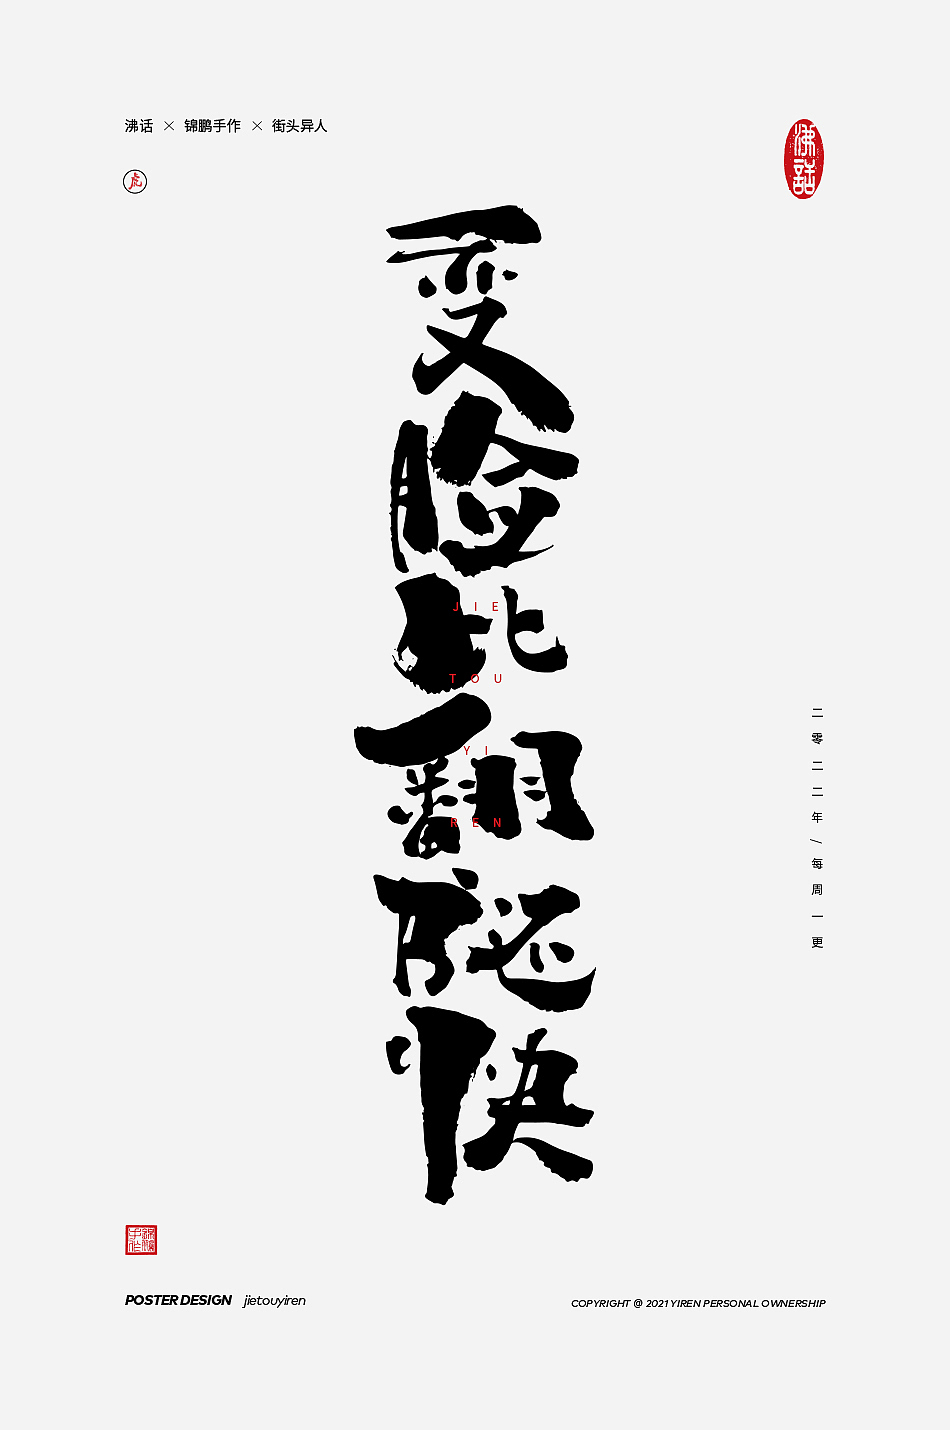 沸话 × 锦鹏手作 × 街头异人
虎
沸話
变脸比翻书还快
JIE
TOU
YI
REN
二零二二年/每周一更
POSTER DESIGN jietouyiren
COPYRIGHT @ 2021 YIREN PERSONAL OWNERSHIP